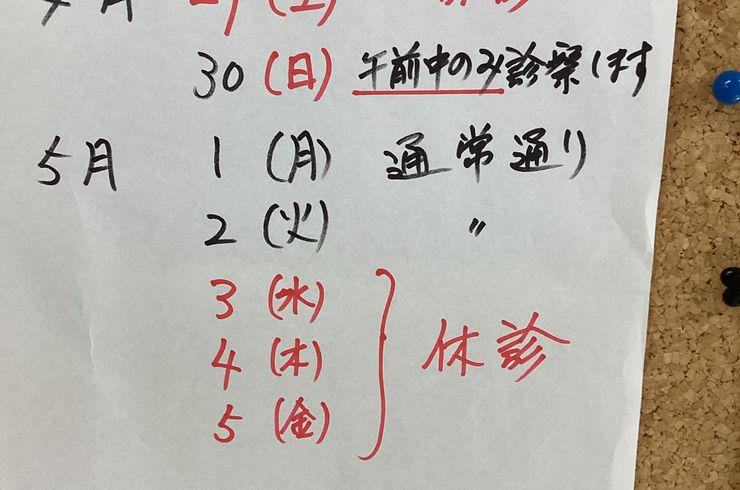 30 (日) 午前中のみ診察します
5月 1 (月) 通常通り
2 (火) 〃
3 (水)
4 (木) 休診
5 (金)